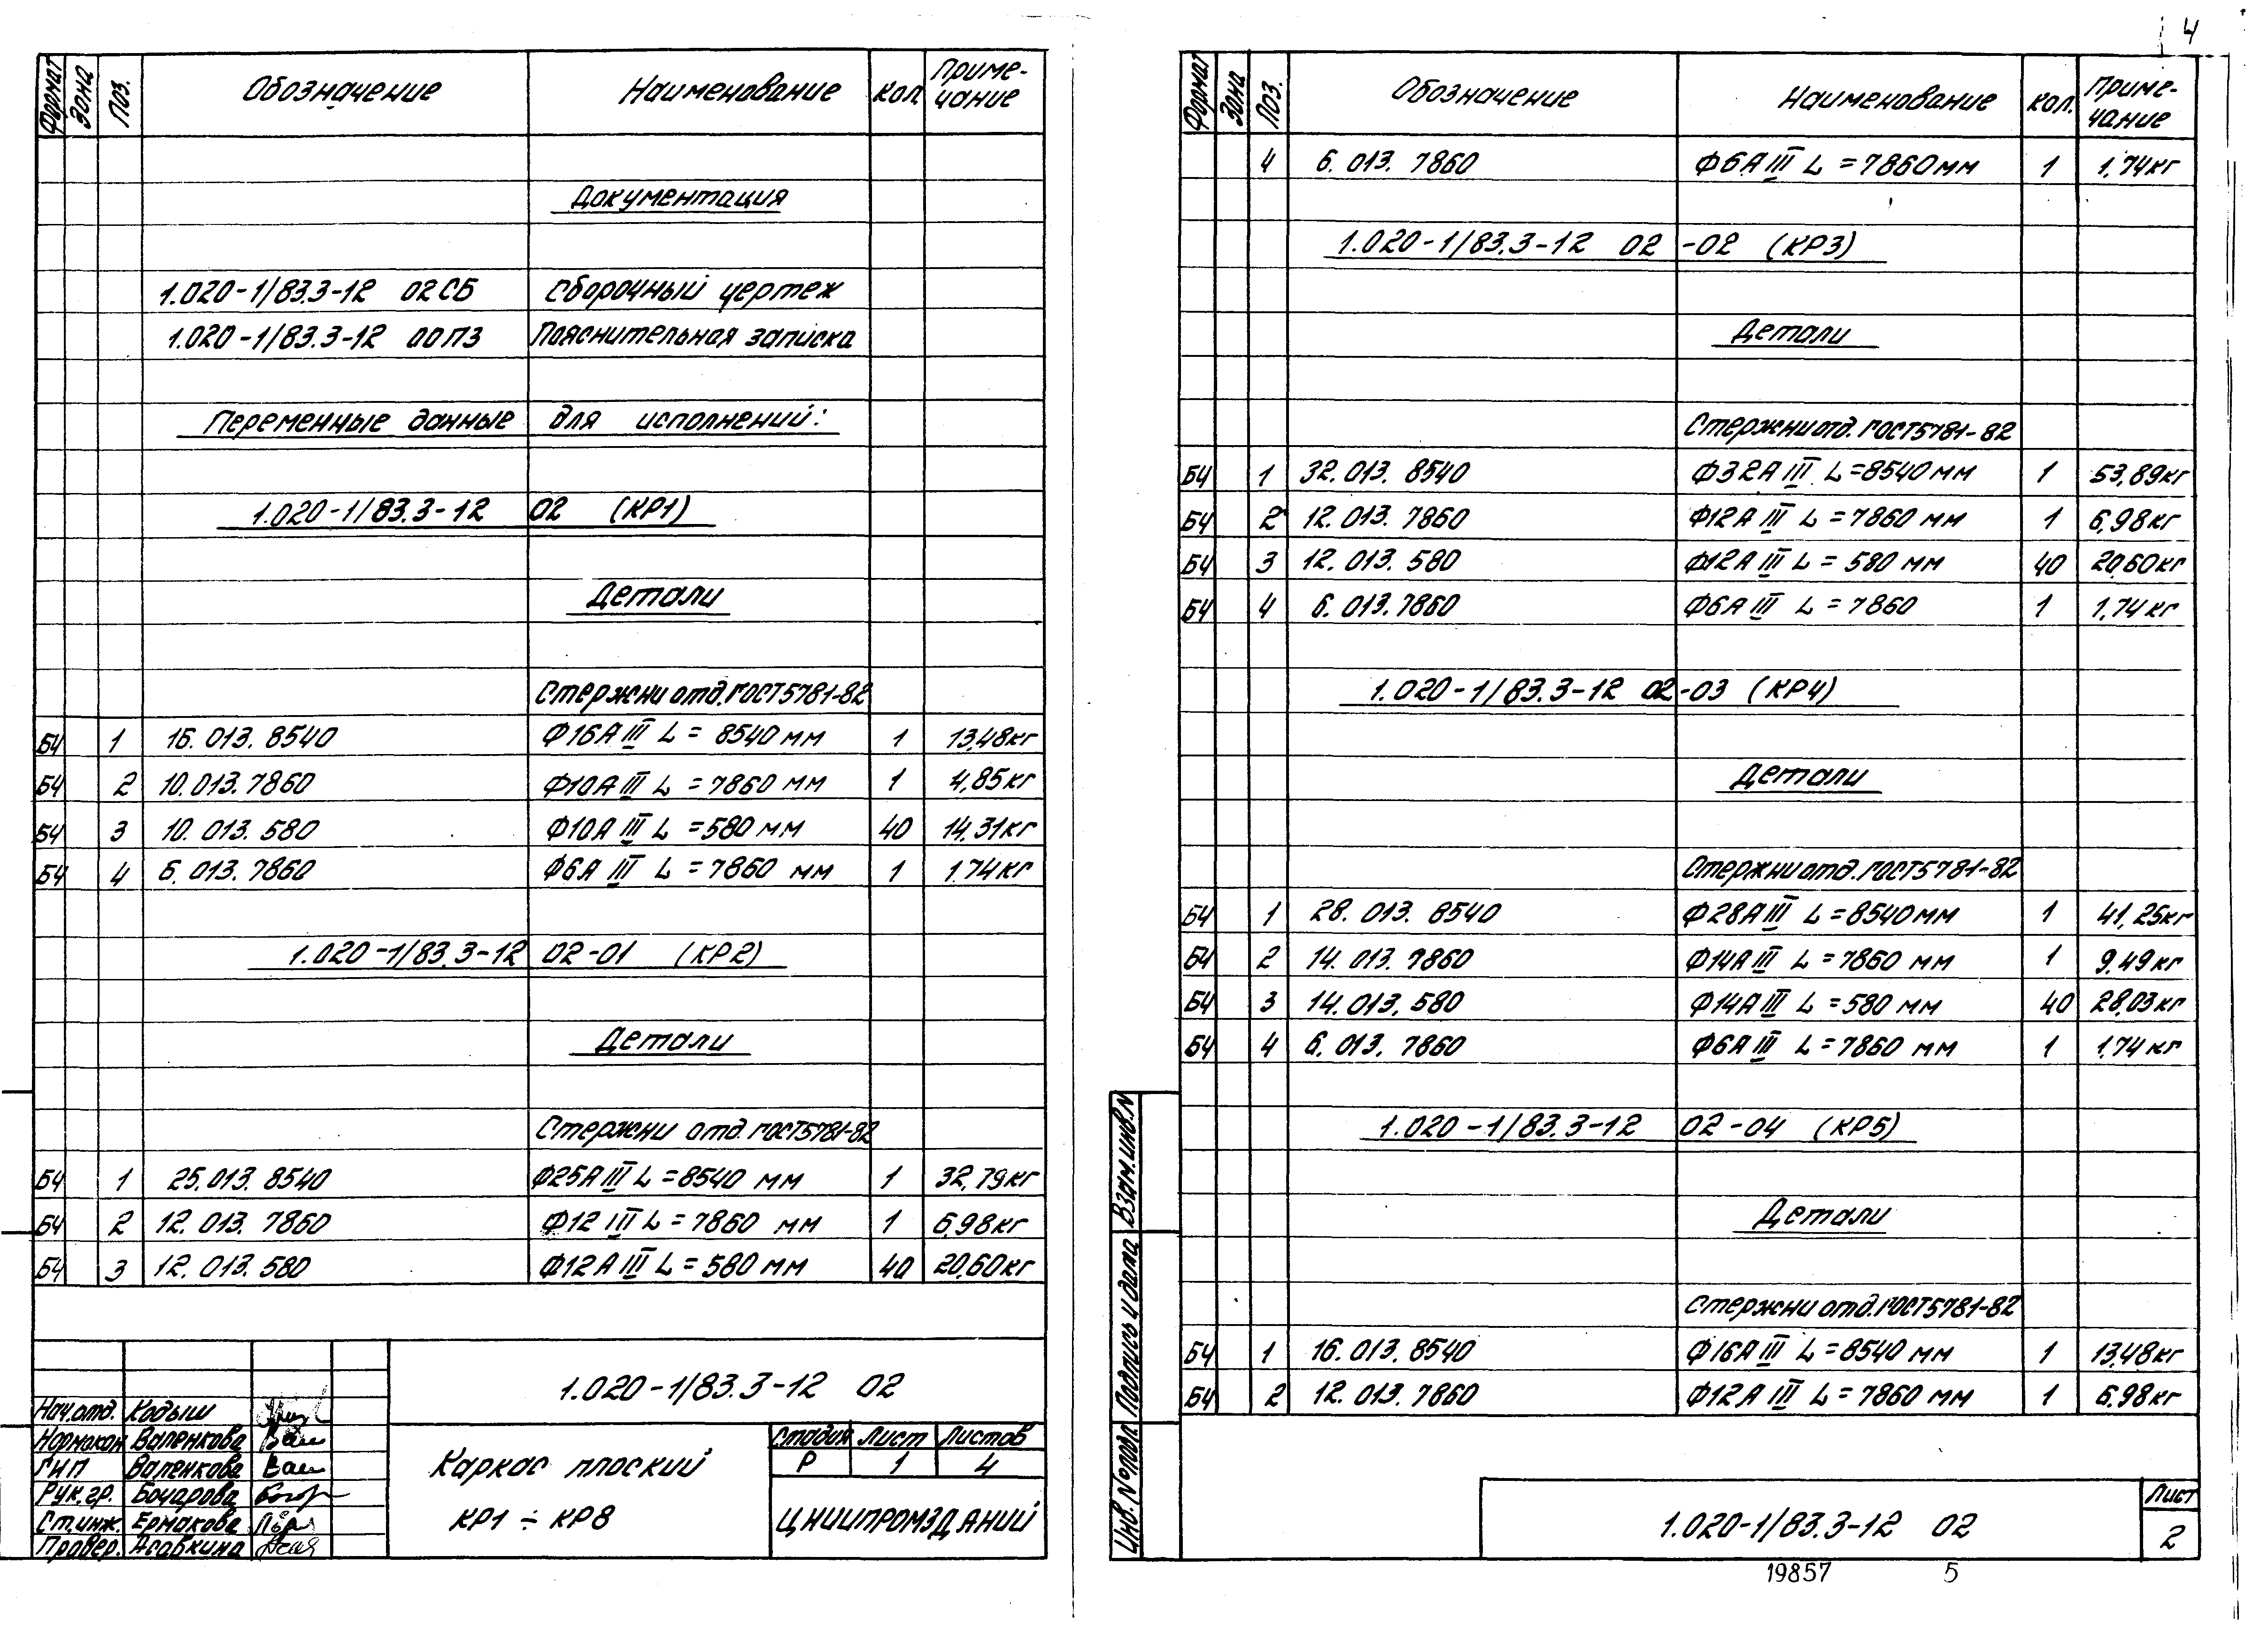 Формат Зона Поз. Обозначение Наименование Кол. Приме-
чание
Документация
1.020-1/83.3-12 02СБ Сборочный чертеж
1.020-1/83.3-12 00ПЗ Пояснительная записка
Переменные данные для исполнений:
1.020-1/83.3-12 02 (КР1)
Детали
Стержни отд. ГОСТ5781-82
БЧ 1 16.013.8540 Ф16АIII L = 8540 мм 1 13,48кг
БЧ 2 10.013.7860 Ф10АIII L = 7860 мм 1 4,85кг
БЧ 3 10.013.580 Ф10АIII L = 580 мм 40 14,31кг
БЧ 4 6.013.7860 Ф6АIII L = 7860 мм 1 1.74кг
1.020-1/83.3-12 02-01 (КР2)
Детали
Стержни отд. ГОСТ5781-82
БЧ 1 25.013.8540 Ф25АIII L = 8540 мм 1 32,79кг
БЧ 2 12.013.7860 Ф12 III L = 7860 мм 1 6,98кг
БЧ 3 12.013.580 Ф12АIII L = 580 мм 40 20,60кг
1.020-1/83.3-12 02
Нач.отд. Кодыш
Нормокон Валенкова Вал
ГИП Валенкова Вал
Рук.гр. Бочарова
Ст.инж. Ермакова
Провер. Асавкина
Каркас плоский
КР1 ÷ КР8
Стадия Лист Листов
Р 1 4
ЦНИИПРОМЗДАНИЙ
4
Формат Зона Поз. Обозначение Наименование Кол. Приме-
чание
4 6.013.7860 Ф6АIII L = 7860мм 1 1,74кг
1.020-1/83.3-12 02 -02 (КР3)
Детали
Стержни отд. ГОСТ5781-82
БЧ 1 32.013.8540 Ф32АIII L = 8540 мм 1 53,89кг
БЧ 2 12.013.7860 Ф12АIII L = 7860 мм 1 6,98кг
БЧ 3 12.013.580 Ф12АIII L = 580 мм 40 20,60кг
БЧ 4 6.013.7860 Ф6АIII L = 7860 1 1,74кг
1.020-1/83.3-12 02-03 (КР4)
Детали
Стержни отд. ГОСТ5781-82
БЧ 1 28.013.8540 Ф28АIII L = 8540мм 1 41,25кг
БЧ 2 14.013.7860 Ф14АIII L = 7860 мм 1 9,49кг
БЧ 3 14.013.580 Ф14АIII L = 580 мм 40 28,03кг
БЧ 4 6.013.7860 Ф6АIII L = 7860 мм 1 1,74кг
1.020-1/83.3-12 02-04 (КР5)
Детали
Стержни отд. ГОСТ5781-82
БЧ 1 16.013.8540 Ф16АIII L = 8540 мм 1 13,48кг
БЧ 2 12.013.7860 Ф12АIII L = 7860 мм 1 6,98кг
Инв.№подл Подпись и дата Взам.инв.N
1.020-1/83.3-12 02
Лист
2
19857 5